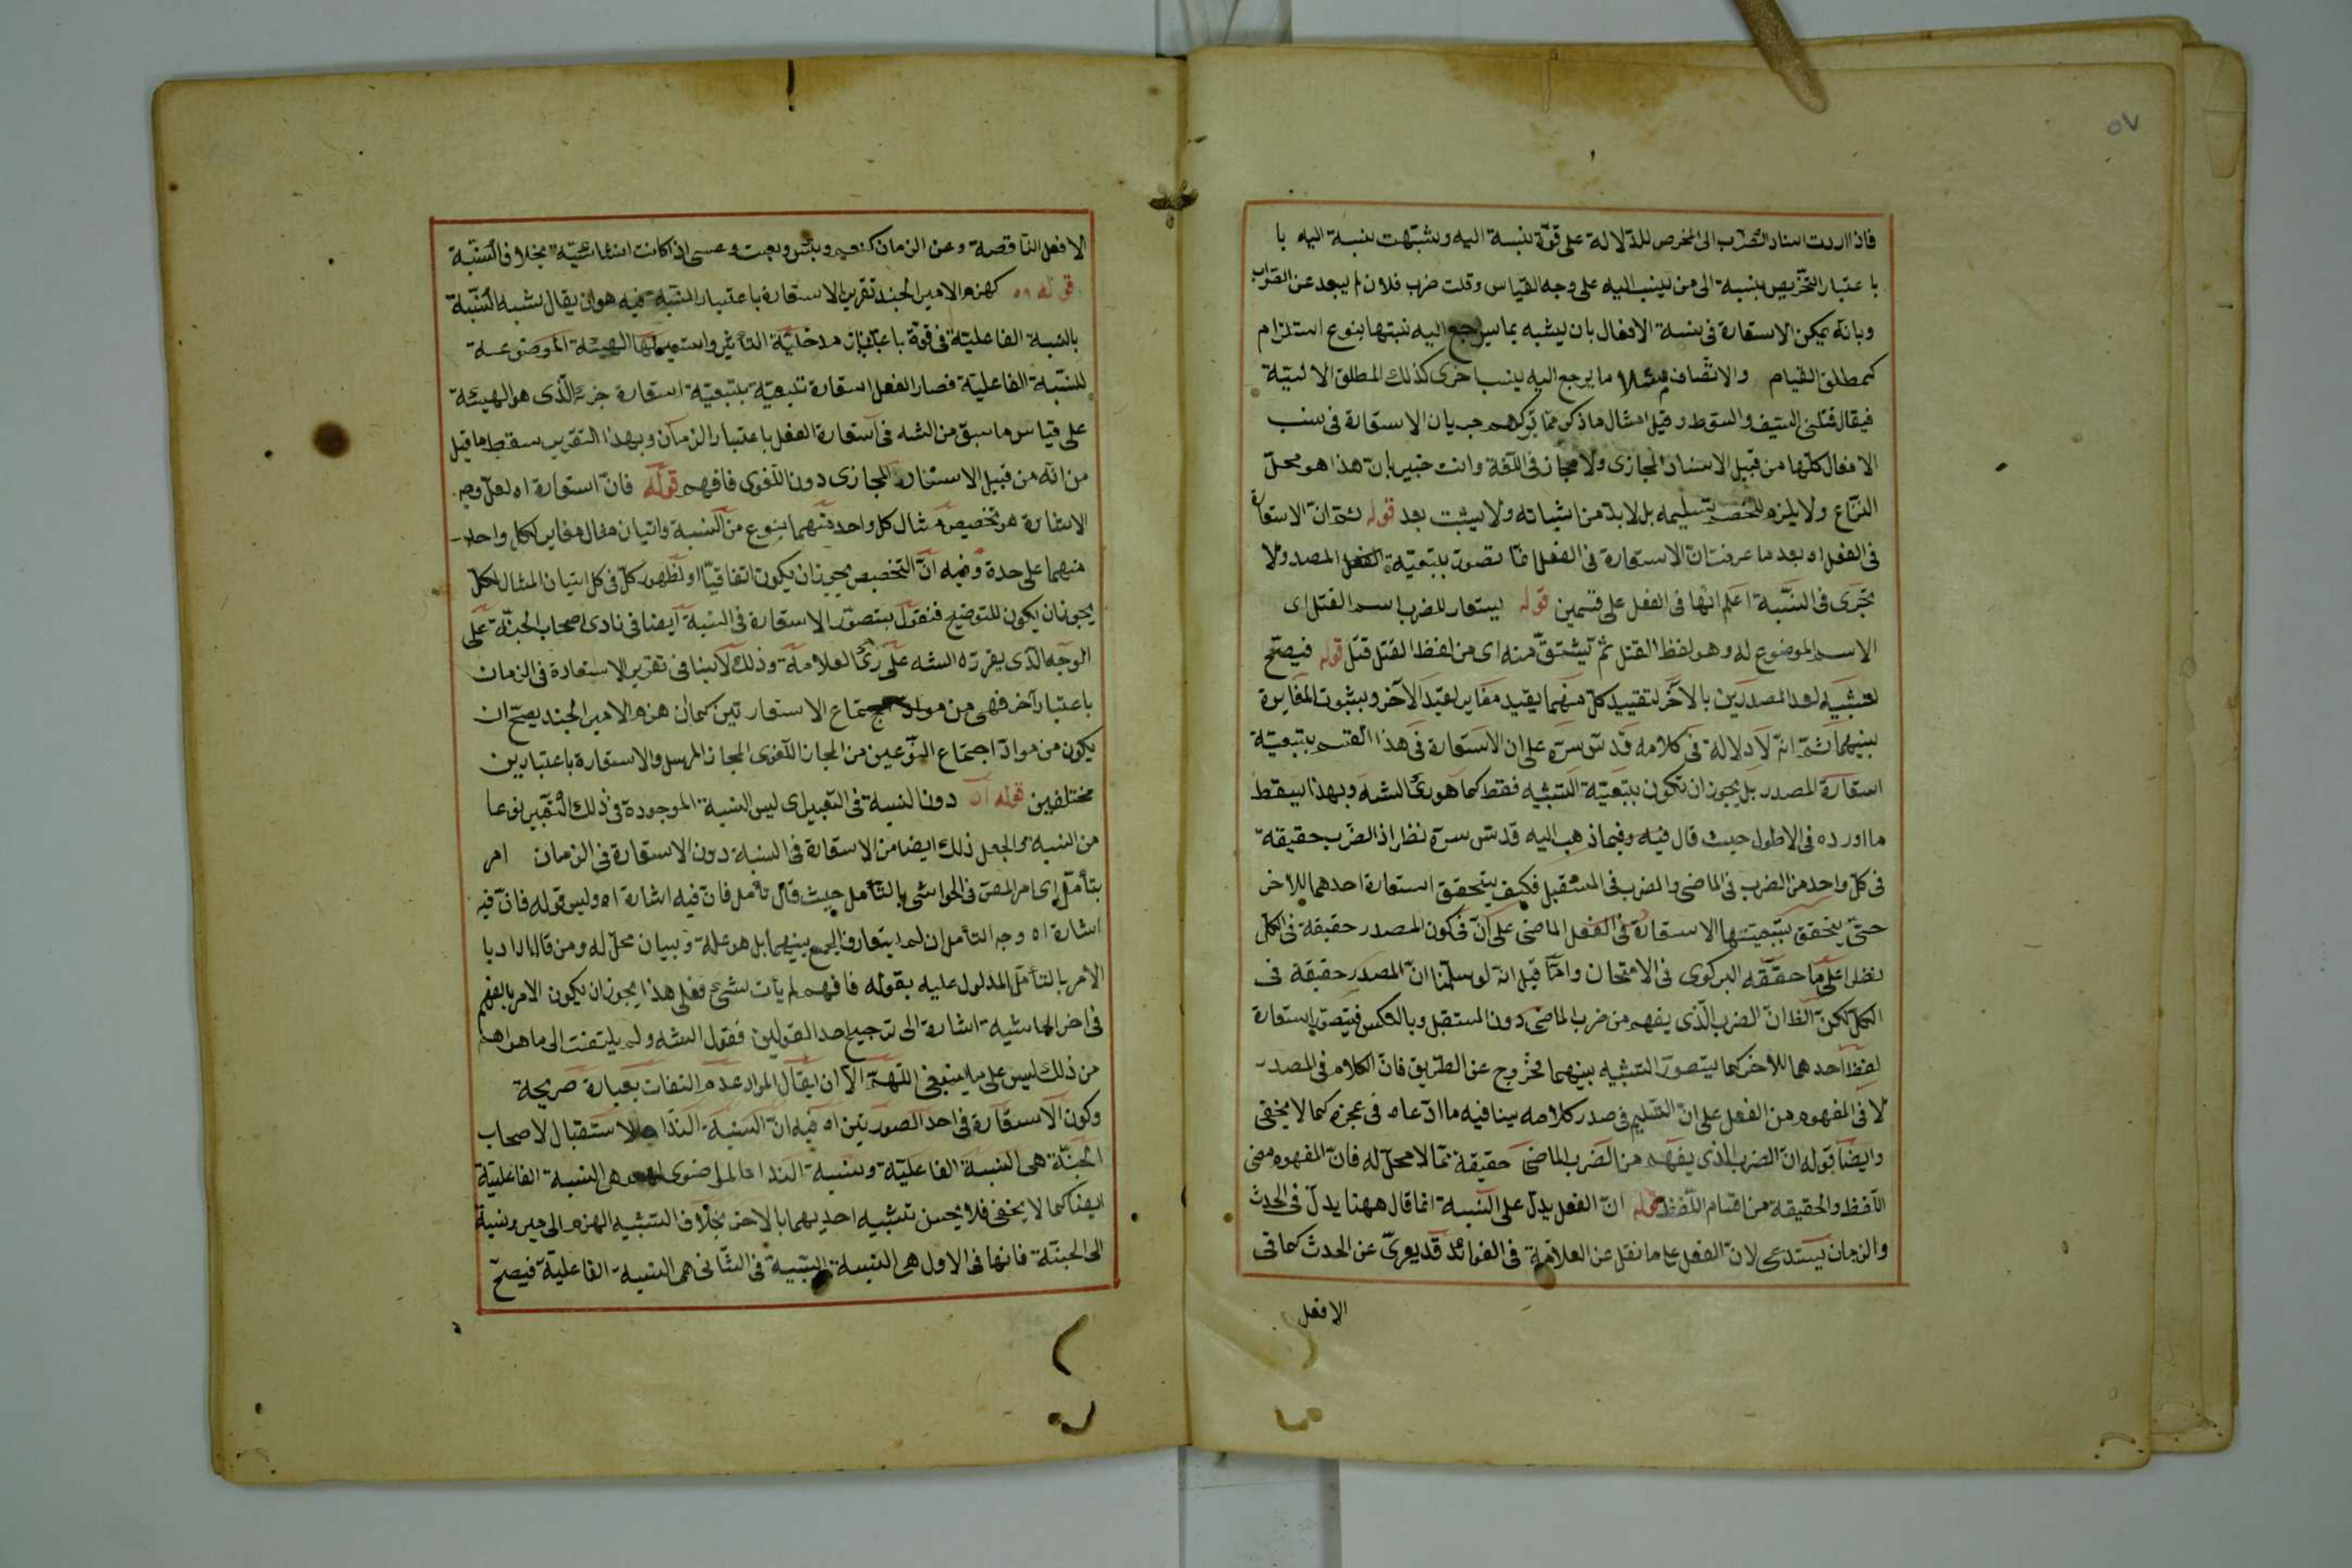 ٥٧
فاذا اردت اسناد الضرب الى المخرص للدلالة على قوّة نسبة اليه وشبّهت نسبة اليه با
با عتبار التخريص بنسبة الى من ينسب اليه على وجه القياس وقلت ضرب فلان لم يبعد عن الصّواب
وبانّه يمكن الاستعارة فى نسبة الافعال بان يشبه بما يرجع اليه نسبتها بنوع استلزام
كمطلق القيام والاتّصاف مثلا ما يرجع اليه بنسب اخرى كذلك المطلق الاليّة
فيقال قتلنى السّيف والسّوط وقيل امثال ما ذكر ممّا تركهم جريان الاستعارة فى نسب
الافعال كلّها من قبيل الاسناد المجازى ولا مجاز فى اللّغة وانت خبير بانّ هذا هو محلّ
النّزاع ولا يلزم للخصم تسليمه بل لا بدّ من اثباته ولا يثبت بعد قوله ثمّ انّ الاستعارة
فى الفعل اه بعد ما عرفت انّ الاستعارة فى الفعل انّما تصوّر بتبعيّة المصدر ولا
تجرى فى النّسبة اعلم انّها فى الفعل على قسمين قوله يستعار للضرب اسم القتل اى
الاسم الموضوع له وهو لفظ القتل ثمّ يشتقّ منه اى من لفظ القتل قتل قوله فيصحّ
لتشبيه احد المصدرين بالآخر لتقييد كلّ منهما بقيد مغاير لقيد الآخر وبثبوت المغايرة
بينهما ثمّ انّه لا دلالة فى كلامه قدّس سرّه على ان الاستعارة فى هذا القسم بتبعيّة
استعارة المصدر بل يجوز ان تكون بتبعيّة التشبيه فقط كما هو رأى الشه وبهذا يسقط
ما اورده فى الاطول حيث قال فيه وفيما ذهب اليه قدّس سرّه نظر اذ الضّرب حقيقة
فى كلّ واحد من الضرب فى الماضى والضرب فى المستقبل فكيف يتحقق استعارة احدهما للاخر
حتىّ يتحقق بتبعيّتها الاستعارة فى الفعل الماضى على انّ فى كون المصدر حقيقة فى الكلّ
نظرا على ما حقّقه البركوى فى الامتحان وامّا قيل انّه لو سلّمنا انّ المصدر حقيقة فى
الكلّ لكنّ الظ انّ الضرب الّذى يفهم من ضرب الماضى دون المستقبل وبالعكس فيتصوّر استعارة
لفظ احدهما للاخر كما يتصوّر التشبيه بينهما فخروج عن الطّريق فانّ الكلام فى المصدر
لا فى المفهوم من الفعل على انّ التسليم فى صدر كلامه ينافيه ما ادّعاه فى عجزه كما لا يخفى
وايضا قوله انّ الضرب الّذى يفهم من الضّرب الماضى حقيقة ممّا لا محلّ له فانّ المفهوم معنى
اللّفظ والحقيقة من اقسام اللّفظ قوله انّ الفعل يدلّ على النّسبة انما قال ههنا يدلّ فى الحدث
والزمان يستدعى لانّ الفعل على ما نقل عن العلاّمة فى الفوائد قد يعرىّ عن الحدث كما فى
الافعل
الافعل النّاقصة وعن الزمان كنعم وبئس وبعت وعسى اذا كانت انشائيّة بخلاف النّسبة
قوله اه كهزم الامير الجند تقرير الاستعارة باعتبار النّسبة فيه هو ان يقال شبه النّسبة
بالنسبة الفاعليّة فى قوّة مدخليّة التأثير واستعير لها الهيئة الموضوعة
للنّسبة الفاعليّة فصار الفعل استعارة تبعيّة بتبعيّة استعارة جزئه الّذى هو الهيئة
على قياس ما سبق من الشه فى استعارة الفعل باعتبار الزمان وبهذا التقرير سقط ما قيل
من انّه من قبيل الاسناد المجازى دون اللّغوى فافهم قوله فانّ استعارة اه لعلّ وجه
الاشارة هو تخصيص مثال كل واحد منهما بنوع من النّسبة واتيان مثال مغاير لكل واحد
منهما على حدة وفيه انّ التخصيص يجوز ان يكون اتفاقيّا او لظهور كلّ فى كل اتيان المثال لكلّ
يجوز ان يكون للتوضيح فنقول يتصوّر الاستعارة فى النّسبة ايضا فى نادى اصحاب الجنّة على
الوجه الّذى يقرّره الشه على رأى العلامة وذلك لا ينافى تقرير الاستعارة فى الزمان
باعتبار آخر فهى من موادّ اجتماع الاستعارتين كما ان هزم الامير الجند يصحّ ان
يكون من موادّ اجتماع النّوعين من المجاز اللّغوى المجاز المرسل والاستعارة باعتبارين
مختلفين قوله اه دون النسبة فى التعبير اى ليس النسبة الموجودة فى ذلك التّعبير نوعا
من النسبة والجعل ذلك ايضا من الاستعارة فى النسبة دون الاستعارة فى الزمان امر
بتأمّل اى امر المصّ فى الحواشى بالتّأمل حيث قال تأمل فانّ فيه اشارة اه وليس قوله فانّ فيه
اشارة اه وجه التأمل ان لم يتعارف الجمع بينهما بل هو علة وبيان محلّ له ومن قال اراد با
الأمر بالتأمّل المدلول عليه بقوله فافهم لم يأت بشئ فعلى هذا يجوز ان يكون الامر بالفهم
فى اخر الحاشية اشارة الى ترجيح احد القولين فقول الشه ولم يلتفت الى ما هو اهم
من ذلك ليس على ما ينبغى اللّهمّ الّا ان يقال المراد عدم التفات بعبارة صريحة
وكون الاستعارة فى احد الصورتين اه فيه انّ النسبة النّداء والاستقبال لاصحاب
الجنّة هى النسبة الفاعليّة ونسبة النداء الماضوى هى النسبة الفاعليّة
ايضا كما لا يخفى فلا يحسن تشبيه احديهما بالاخرى بخلاف التشبيه الهزم الى مير ونسبة
الى الجنّة فانها فى الاول هى النسبة السّببيّة فى الثّانى هى النسبة الفاعليّة فيصحّ